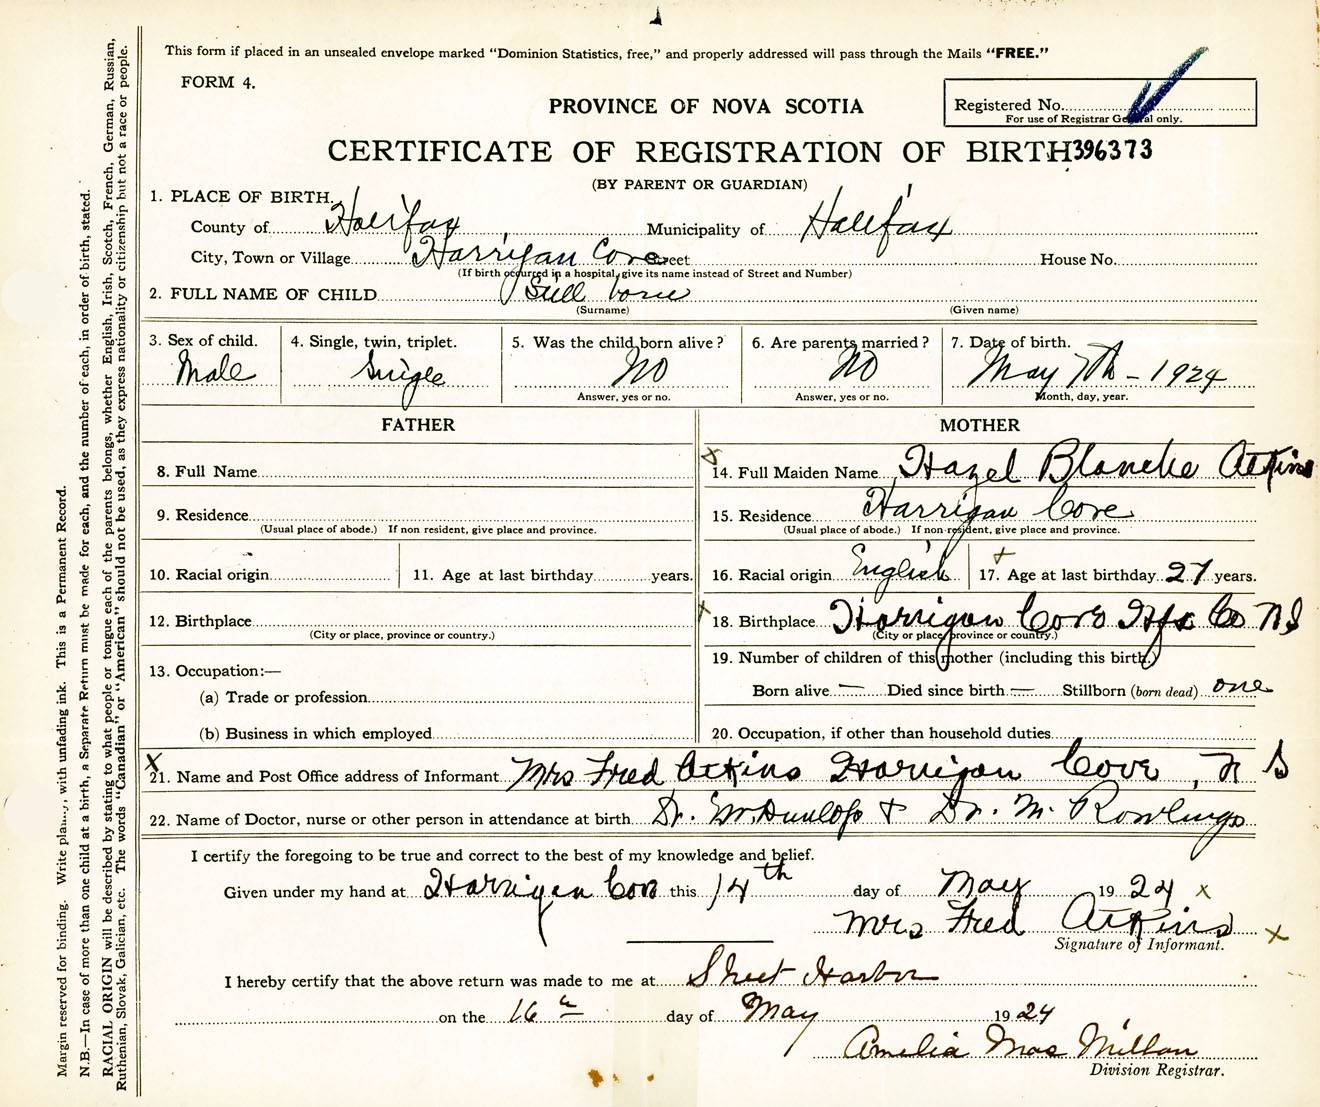 This form if placed in an unsealed envelope marked "Dominion Statistics, free," and properly addressed will pass through the Mails "FREE."
FORM 4.
Registered No.
For use of Registrar General only.
PROVINCE OF NOVA SCOTIA
CERTIFICATE OF REGISTRATION OF BIRTH 396373
(BY PARENT OR GUARDIAN)
1. PLACE OF BIRTH.
County of Halifax Municipality of Halifax
City, Town or Village Harrigan Cove Street House No.
(If birth occurred in a hospital, give its name instead of Street and Number)
2. FULL NAME OF CHILD Still born
(Surname) (Given name)
3. Sex of child. 4. Single, twin, triplet. 5. Was the child born alive? 6. Are parents married? 7. Date of birth.
Male Single No No May 7th - 1924
Answer, yes or no. Answer, yes or no. Month, day, year.
FATHER
8. Full Name
9. Residence
(Usual place of abode.) If non resident, give place and province.
10. Racial origin 11. Age at last birthday years.
12. Birthplace
(City or place, province or country.)
13. Occupation:—
(a) Trade or profession
(b) Business in which employed
MOTHER
x 14. Full Maiden Name Hazel Blanche Atkins
15. Residence Harrigan Cove
(Usual place of abode.) If non-resident, give place and province.
16. Racial origin English 17. Age at last birthday 27 years.
18. Birthplace Harrigan Cove Hfx Co N S
(City or place, province or country.)
19. Number of children of this mother (including this birth.)
Born alive — Died since birth — Stillborn (born dead) one
20. Occupation, if other than household duties
x 21. Name and Post Office address of Informant Mrs Fred Atkins Harrigan Cove, N S
22. Name of Doctor, nurse or other person in attendance at birth Dr. Dunlop + Dr. M. Rowlings
I certify the foregoing to be true and correct to the best of my knowledge and belief.
Given under my hand at Harrigan Cove this 14th day of May 1924 x
Mrs Fred Atkins x
Signature of Informant.
I hereby certify that the above return was made to me at Sheet Harbor
on the 16 day of May 1924
Amelia Milton
Division Registrar.
Margin reserved for binding. Write plainly, with unfading ink. This is a Permanent Record.
N.B.—In case of more than one child at a birth, a Separate Return must be made for each, and the number of each, in order of birth, stated.
RACIAL ORIGIN will be described by stating to what people or tongue each of the parents belongs, whether English, Irish, Scotch, French, German, Russian,
Ruthenian, Slovak, Galician, etc. The words "Canadian" or "American" should not be used, as they express nationality or citizenship but not a race or people.